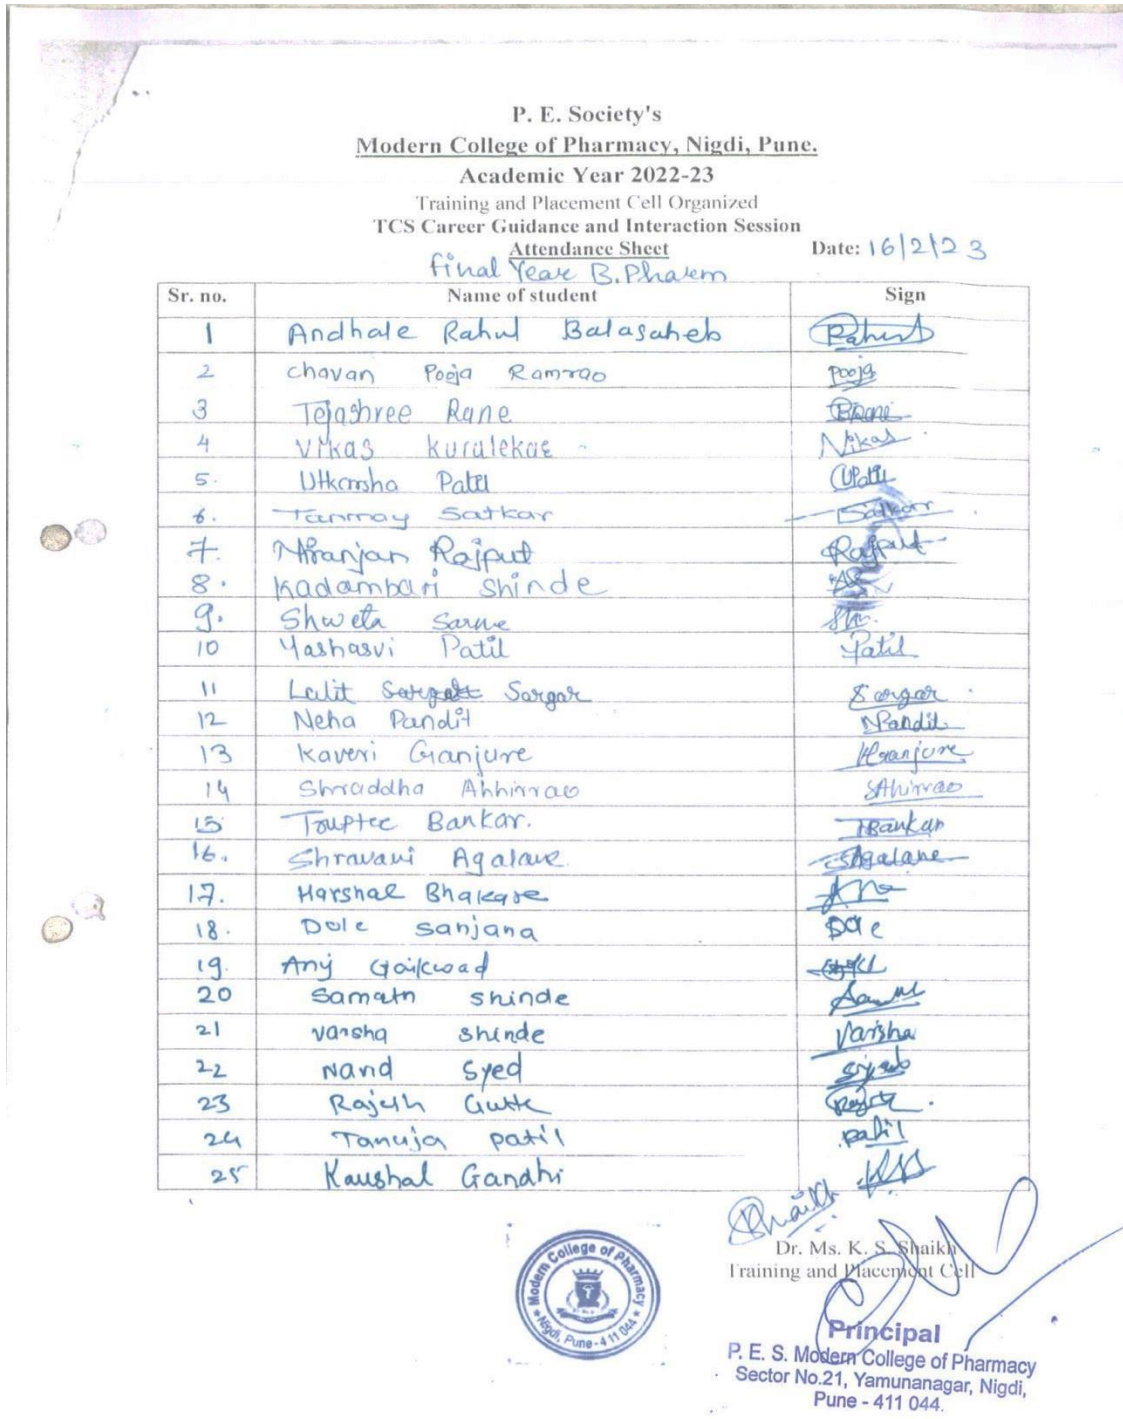 P. E. Society's
Modern College of Pharmacy, Nigdi, Pune.
Academic Year 2022-23
Training and Placement Cell Organized
TCS Career Guidance and Interaction Session
Attendance Sheet Date: 16/2/23
Final Year B.Pharm
Sr. no. Name of student Sign
1 Andhale Rahul Balasaheb Rahul
2 Chavan Pooja Ramrao Pooja
3 Tejashree Rane
4 Vikas Kuralekar Vikas
5. Utkarsha Patil UPatil
6. Tanmay Satkar Satkar
7. Niranjan Rajput Rajput
8. Kadambari Shinde
9. Shweta Sarve
10 Yashasvi Patil Patil
11 Lalit Sargar Sargar
12 Neha Pandit NPandit
13 Kaveri Ganjure
14 Shraddha Ahhirrao SAhirrao
15 Truptee Bankar. TBankar
16. Shravani Agalave SAgalave
17. Harshal Bhakare
18. Dole Sanjana Dole
19. Gaikwad
20 Samarth Shinde
21 Varsha Shinde Varsha
22 Syed
23 Rajesh Gutte
24 Tanuja Patil Patil
25 Kaushal Gandhi
Shaikh
Dr. Ms. K. S. Shaikh
Training and Placement Cell
Modern College of Pharmacy
Nigdi, Pune-411 044
Principal
P. E. S. Modern College of Pharmacy
Sector No.21, Yamunanagar, Nigdi,
Pune - 411 044.